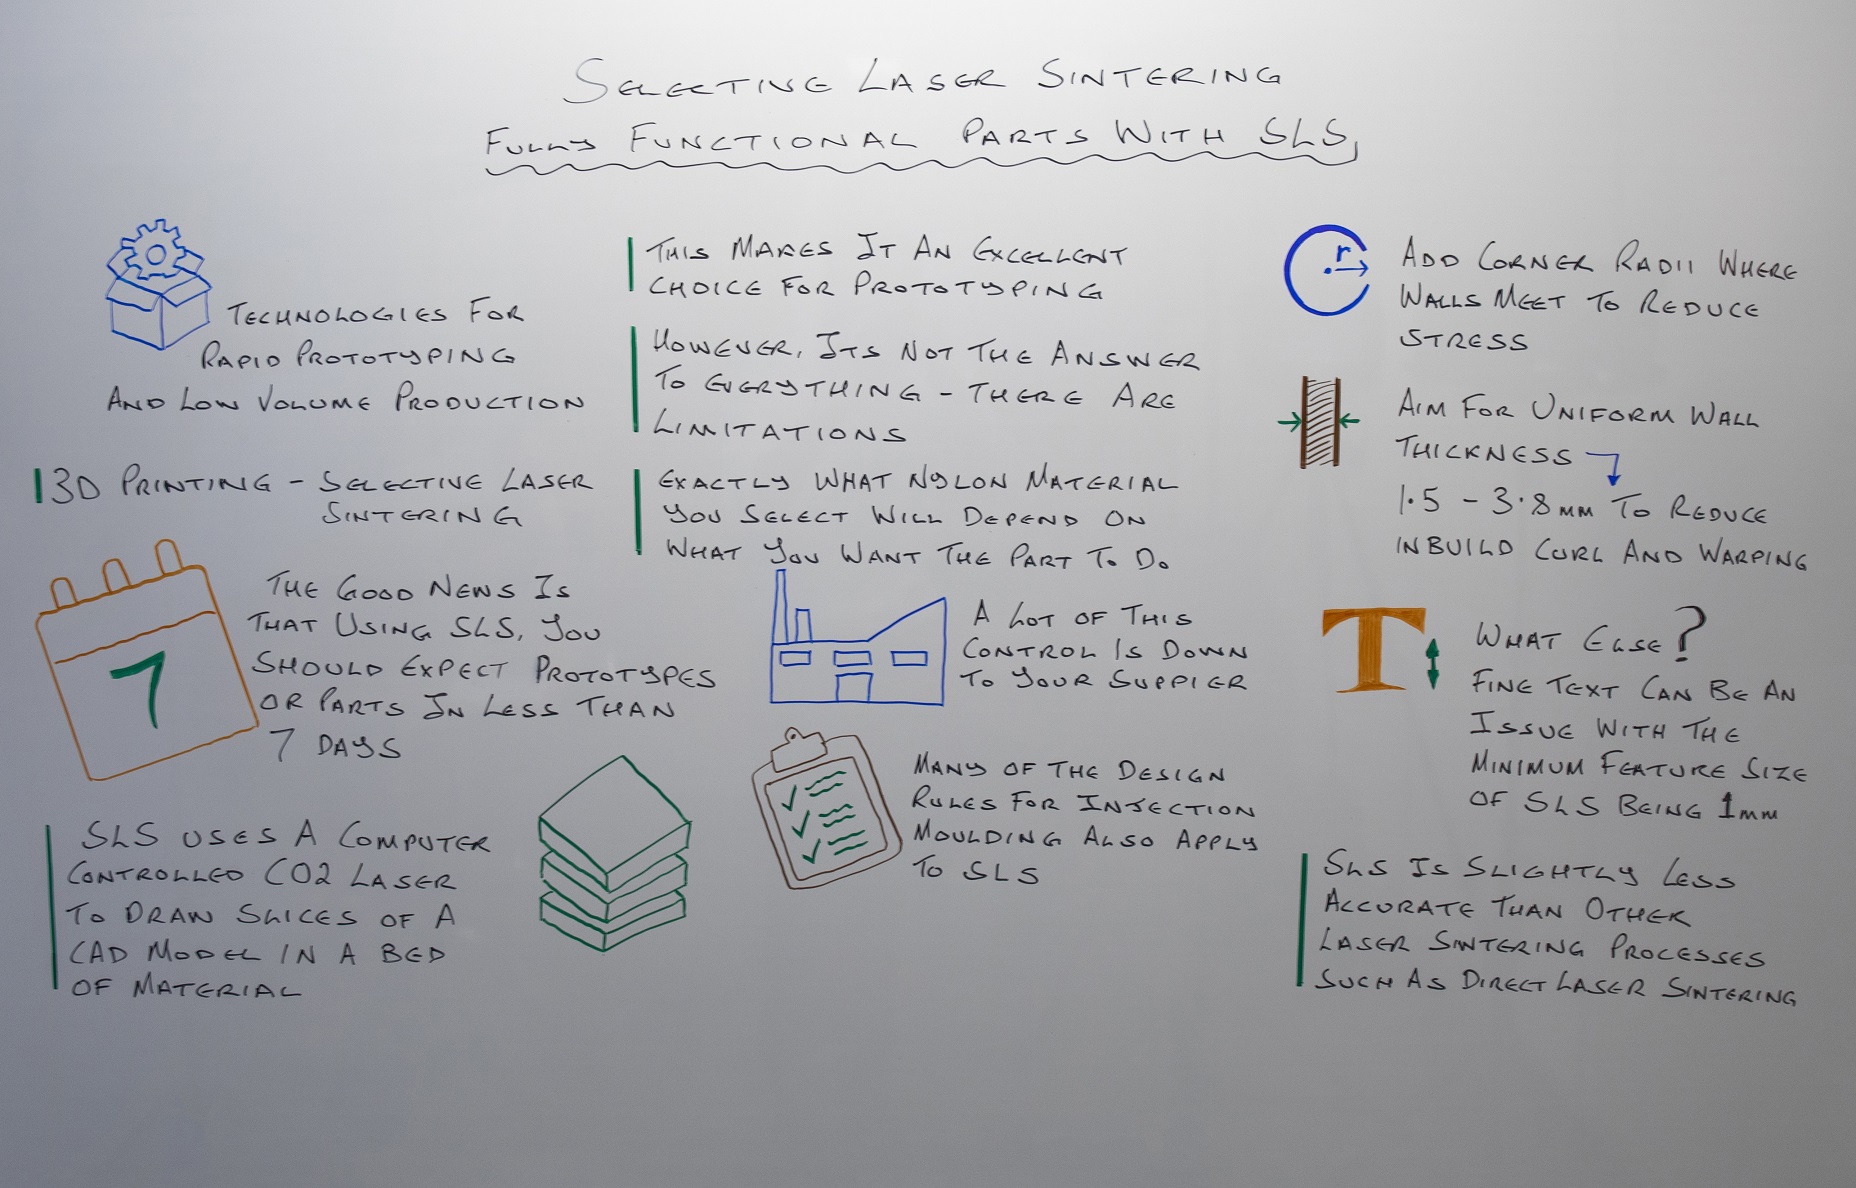 SELECTIVE LASER SINTERING
FULLY FUNCTIONAL PARTS WITH SLS
TECHNOLOGIES FOR
RAPID PROTOTYPING
AND LOW VOLUME PRODUCTION
3D PRINTING - SELECTIVE LASER
SINTERING
7
THE GOOD NEWS IS
THAT USING SLS, YOU
SHOULD EXPECT PROTOTYPES
OR PARTS IN LESS THAN
7 DAYS
SLS USES A COMPUTER
CONTROLLED CO2 LASER
TO DRAW SLICES OF A
CAD MODEL IN A BED
OF MATERIAL
THIS MAKES IT AN EXCELLENT
CHOICE FOR PROTOTYPING
HOWEVER, ITS NOT THE ANSWER
TO EVERYTHING - THERE ARE
LIMITATIONS
EXACTLY WHAT NYLON MATERIAL
YOU SELECT WILL DEPEND ON
WHAT YOU WANT THE PART TO DO
A LOT OF THIS
CONTROL IS DOWN
TO YOUR SUPPIER
MANY OF THE DESIGN
RULES FOR INJECTION
MOULDING ALSO APPLY
TO SLS
r
ADD CORNER RADII WHERE
WALLS MEET TO REDUCE
STRESS
AIM FOR UNIFORM WALL
THICKNESS
1.5 - 3.8MM TO REDUCE
INBUILD CURL AND WARPING
T
WHAT ELSE?
FINE TEXT CAN BE AN
ISSUE WITH THE
MINIMUM FEATURE SIZE
OF SLS BEING 1MM
SLS IS SLIGHTLY LESS
ACCURATE THAN OTHER
LASER SINTERING PROCESSES
SUCH AS DIRECT LASER SINTERING